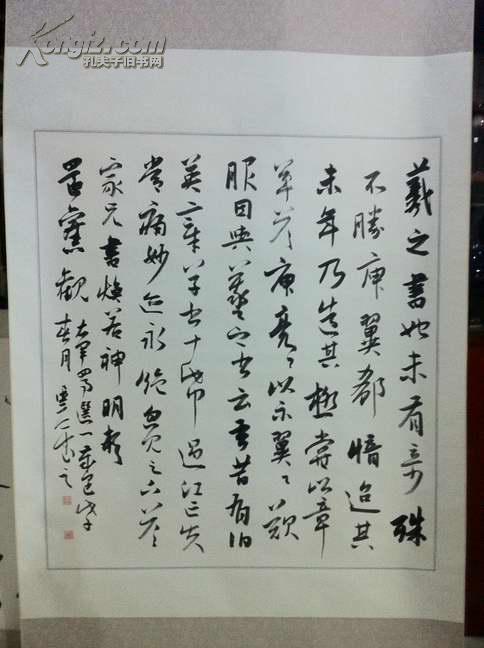 羲之書始未有奇殊
不勝庾翼郗愔迨其
末年乃造其極嘗以章
草答庾亮々以示翼々歎
服因與羲之書云吾昔有伯
英章草十紙過江亡失
常痛妙迹永絕忽見足下答
家兄書煥若神明頓
還舊觀
戊子
春月
書之
kongfz.com
孔夫子旧书网